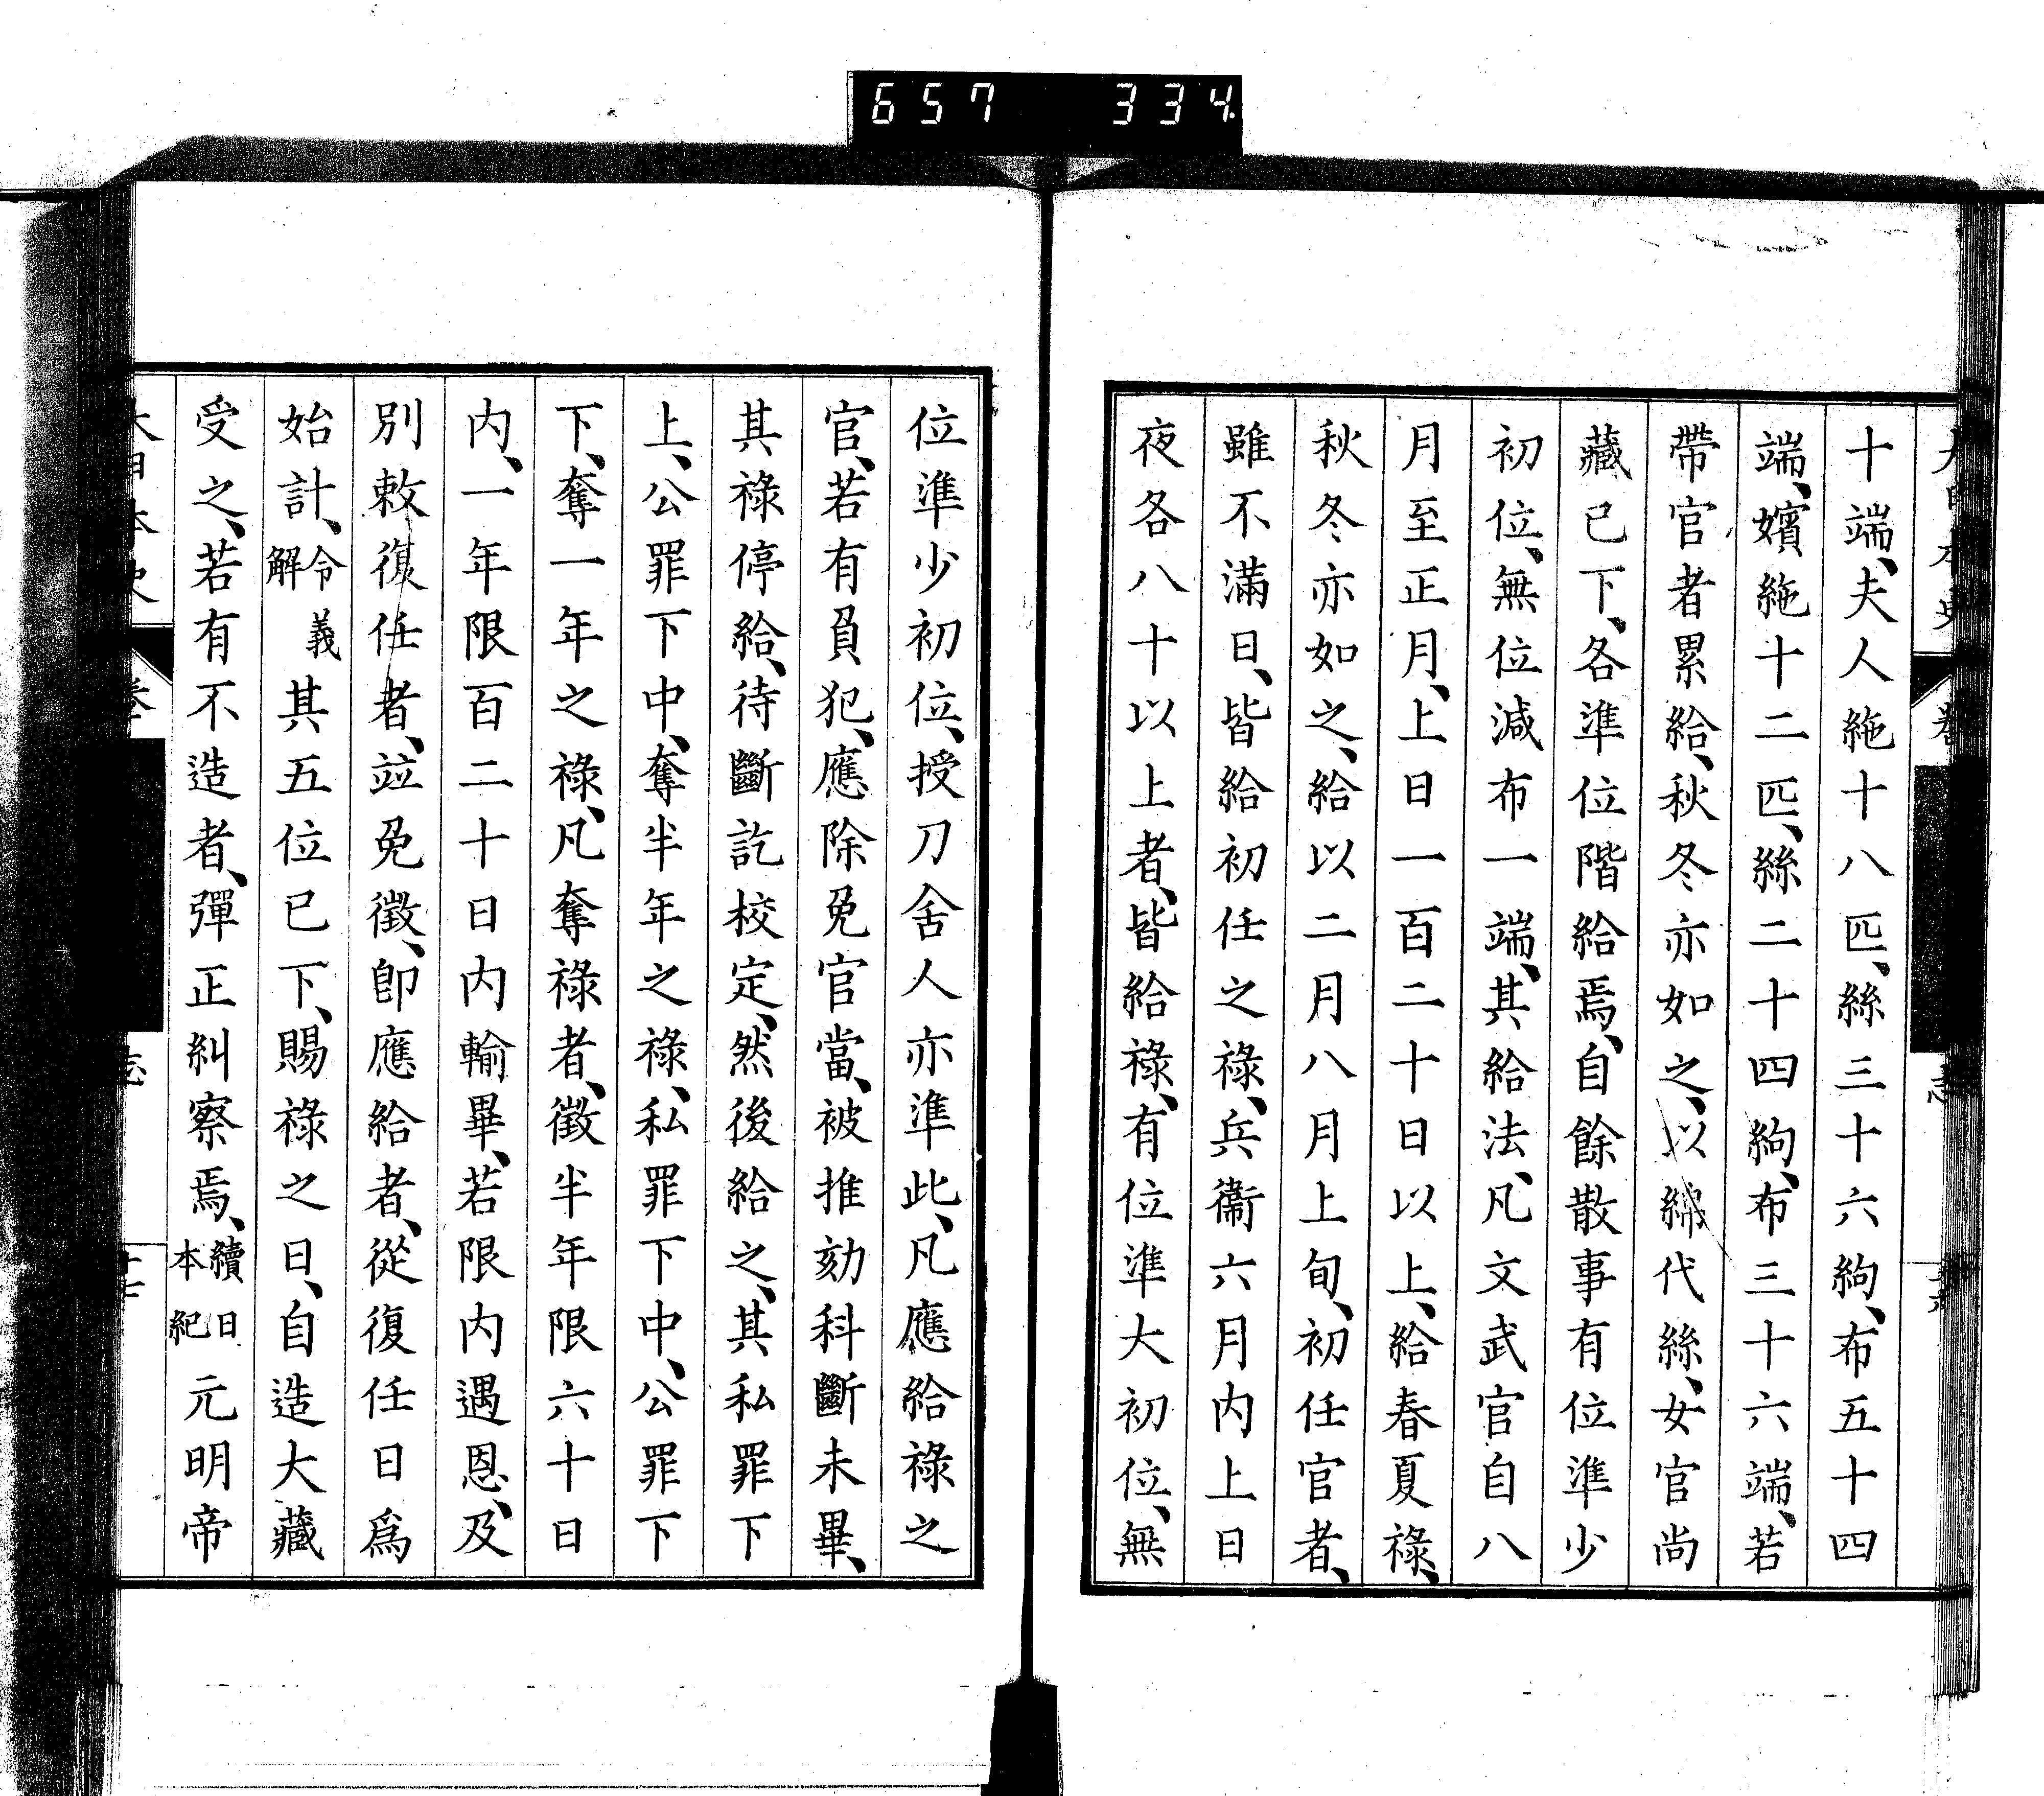 657 334
十端、夫人絁十八匹、絲三十六絇、布五十四
端、嬪絁十二匹、絲二十四絇、布三十六端、若
帶官者累給、秋冬亦如之、以綿代絲、女官尚
藏已下、各準位階給焉、自餘散事有位準少
初位、無位減布一端、其給法、凡文武官自八
月至正月、上日一百二十日以上、給春夏祿、
秋冬亦如之、給以二月八月上旬、初任官者、
雖不滿日、皆給初任之祿、兵衞六月內上日
夜各八十以上者、皆給祿、有位準大初位、無
位準少初位、授刀舍人亦準此、凡應給祿之
官、若有負犯、應除免官當、被推劾科斷未畢、
其祿停給、待斷訖校定、然後給之、其私罪下
上、公罪下中、奪半年之祿、私罪下中、公罪下
下、奪一年之祿、凡奪祿者、徵半年限六十日
內、一年限百二十日內輸畢、若限內遇恩、及
別敕復任者、竝免徵、卽應給者、從復任日爲
始計、令義解其五位已下、賜祿之日、自造大藏
受之、若有不造者、彈正糾察焉、續日本紀元明帝
大日本史 志